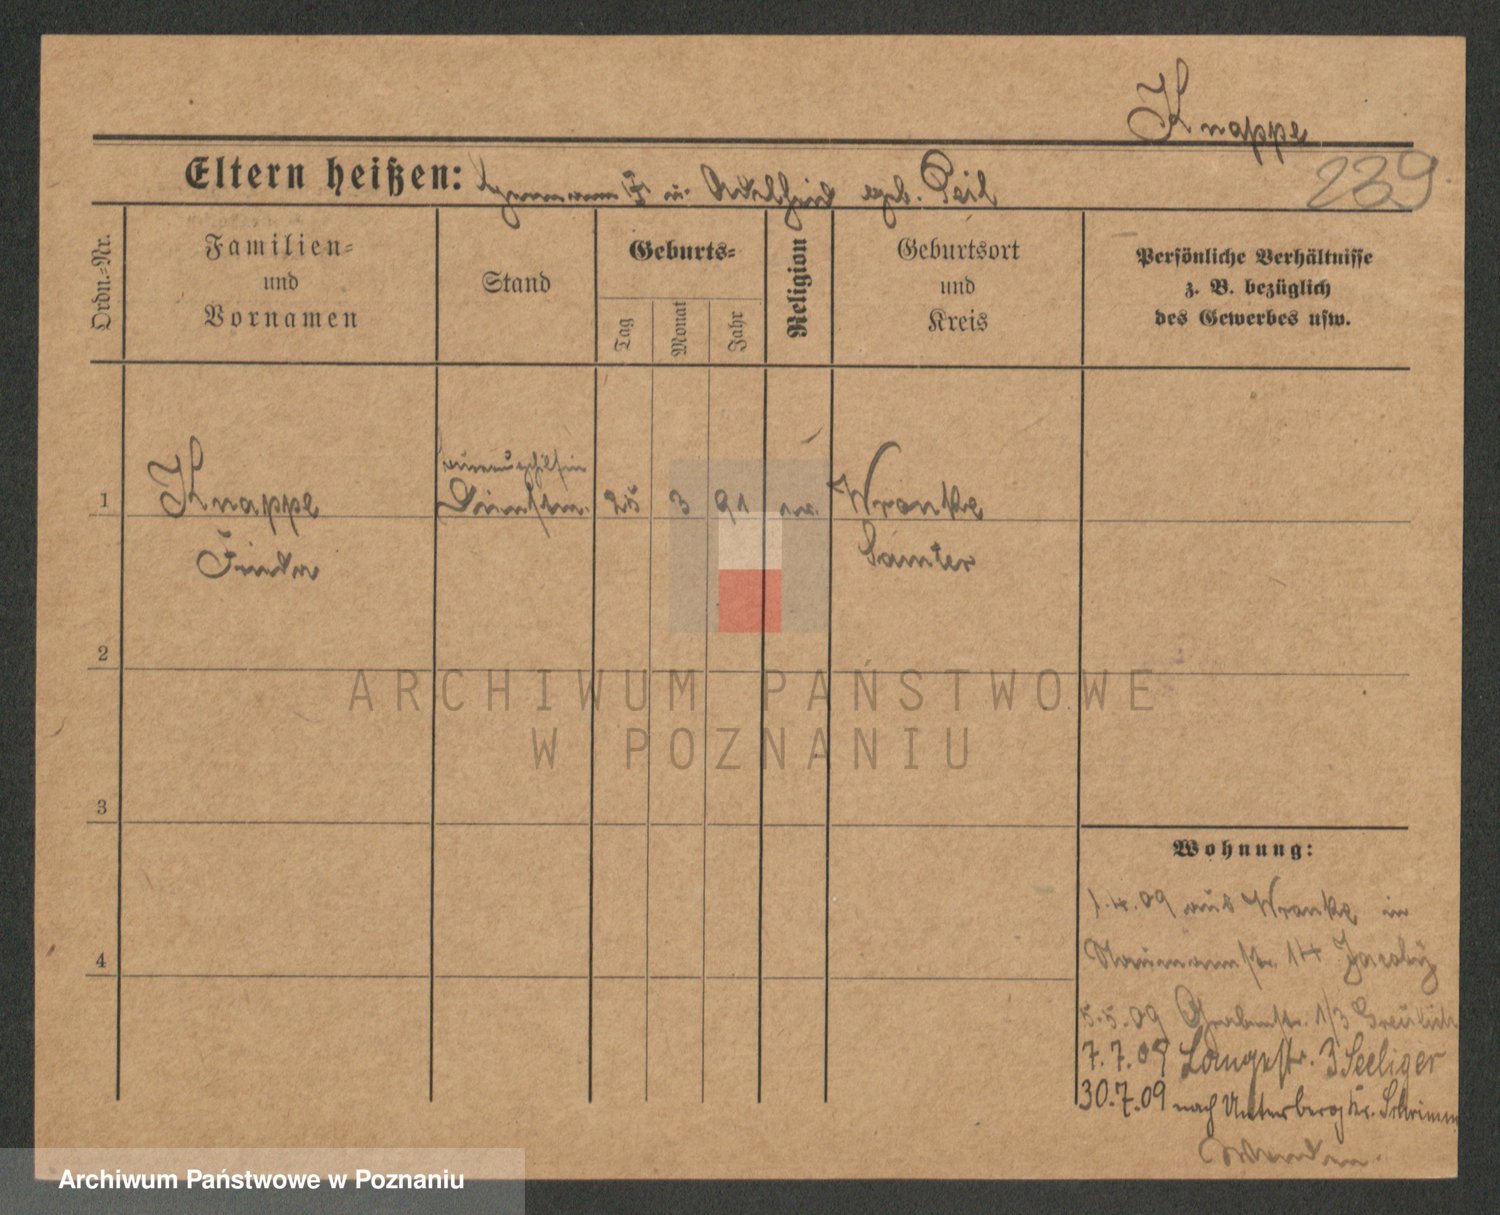 Knappe
239
Eltern heißen: Hermann u. geb. Peil
Ordn.=Nr.
Familien=
und
Vornamen
Stand
Geburts=
Tag
Monat
Jahr
Religion
Geburtsort
und
Kreis
Persönliche Verhältnisse
z. B. bezüglich
des Gewerbes usw.
1
Knappe
25
3
91
Wronke
Samter
2
ARCHIWUM PAŃSTWOWE
W POZNANIU
3
4
Wohnung:
1.4.09 aus Wronke in
Naumannstr. 14 Jacoby
5.5.09 Grabenstr. 1/3
7.7.09 Langestr. 3 Seeliger
30.7.09 nach Unterberg Kr. Schrimm
Archiwum Państwowe w Poznaniu